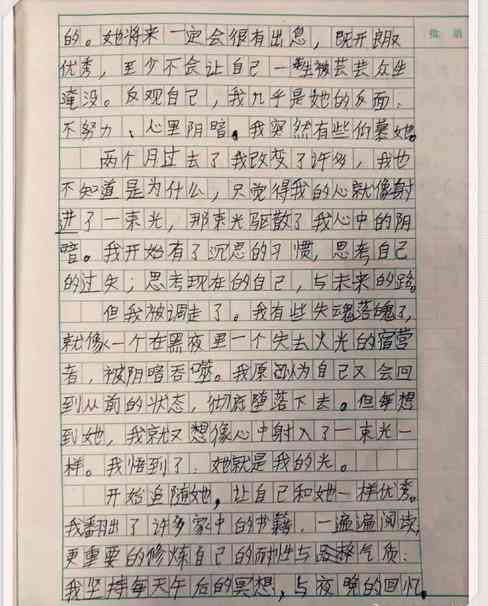 批语
的。她将来一定会很有出息，既开朗又
优秀，至少不会让自己一生被芸芸众生
淹没。反观自己，我几乎是她的反面：
不努力、心里阴暗。我突然有些仰慕她。
两个月过去了我改变了许多，我也
不知道是为什么，只觉得我的心就像射
进了一束光，那束光驱散了我心中的阴
暗。我开始有了沉思的习惯，思考自己
的过失；思考现在的自己，与未来的路。
但我被调走了。我有些失魂落魄了，
就像一个在黑夜里一个失去火光的宿营
者，被阴暗吞噬。我原以为自己又会回
到从前的状态，彻底堕落下去。但每想
到她，我就又想像心中射入了一束光一
样。我悟到了：她就是我的光。
开始追随她，让自己和她一样优秀。
我翻出了许多家中的书籍，一遍遍阅读，
更重要的修炼自己的耐性与品格气质：
我坚持每天午后的冥想，与夜晚的回忆，